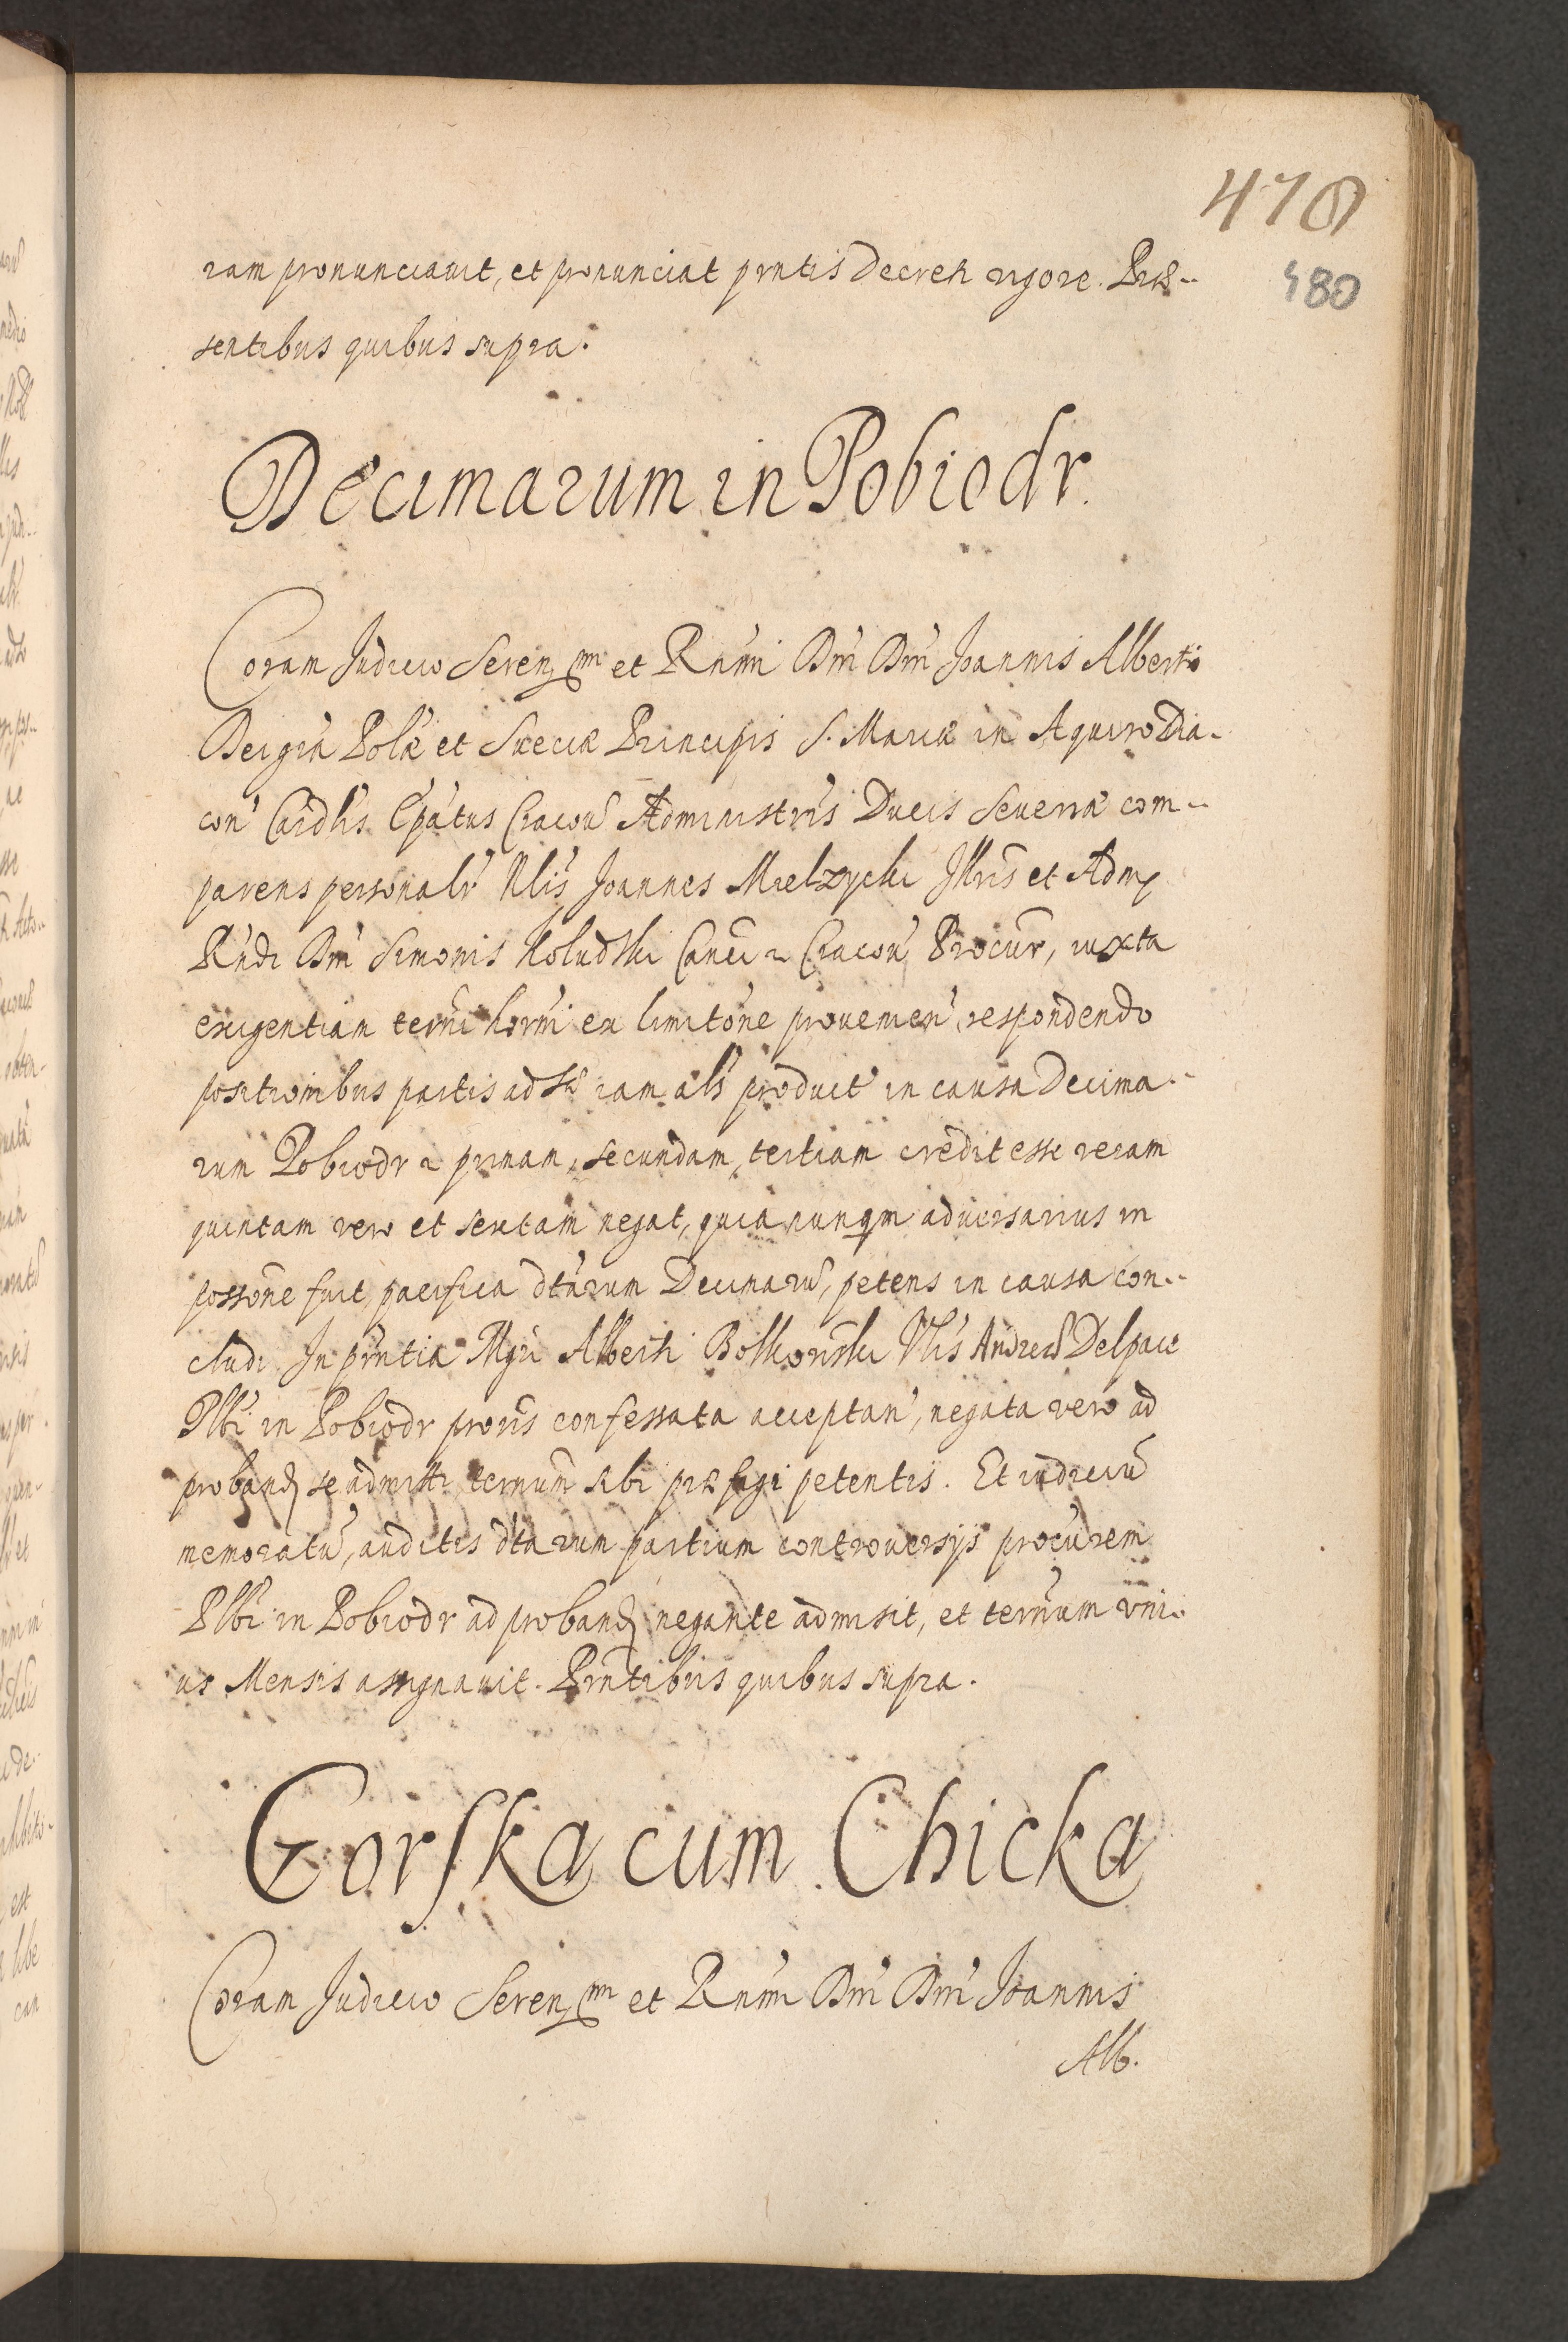 478
480
ram pronunciavit, et pronunciat prntis Decreti rigore. Præ-
sentibus quibus supra.
Decimarum in Pobiedr.
Coram Judicio Serenmi et Rnmi Dni Dni Joannis Alberti
Dei gra Polæ et Sueciæ Principis S. Mariæ in Aquiro Dia-
con Cardlis Epatus Cracou Administris Ducis Seueriæ com-
parens personalr Nlis Joannes Mielzycki Illris et Adm
Rndi Dni Simonis Koludzki Canci Cracou Procur, iuxta
exigentiam termi horni ex limitone prouenien, respondendo
positionibus partis adsæ iam als product in causa Decima-
rum Pobiodr primam, secundam, tertiam credit esse veram
quintam vero et sextam negat, quia nunqm aduersarius in
possone fuit pacifica dtarum Decimarū, petens in causa con-
cludi. In prntia Mgri Alberti Bolkonski Nlis Andreæ Delpace
Plbi in Pobiodr proris confessata acceptan, negata vero ad
proband se admitti ternum sibi præfigi petentis. Et iudiciū
memoratū, auditis dtarum partium controuersijs procurem
Plbi in Pobiodr ad proband negante admisit, et ternum vni-
us Mensis assignauit. Prntibus quibus supra.
Gorska cum Chicka
Coram Judicio Serenmi et Rnmi Dni Dni Joannis
Alb.